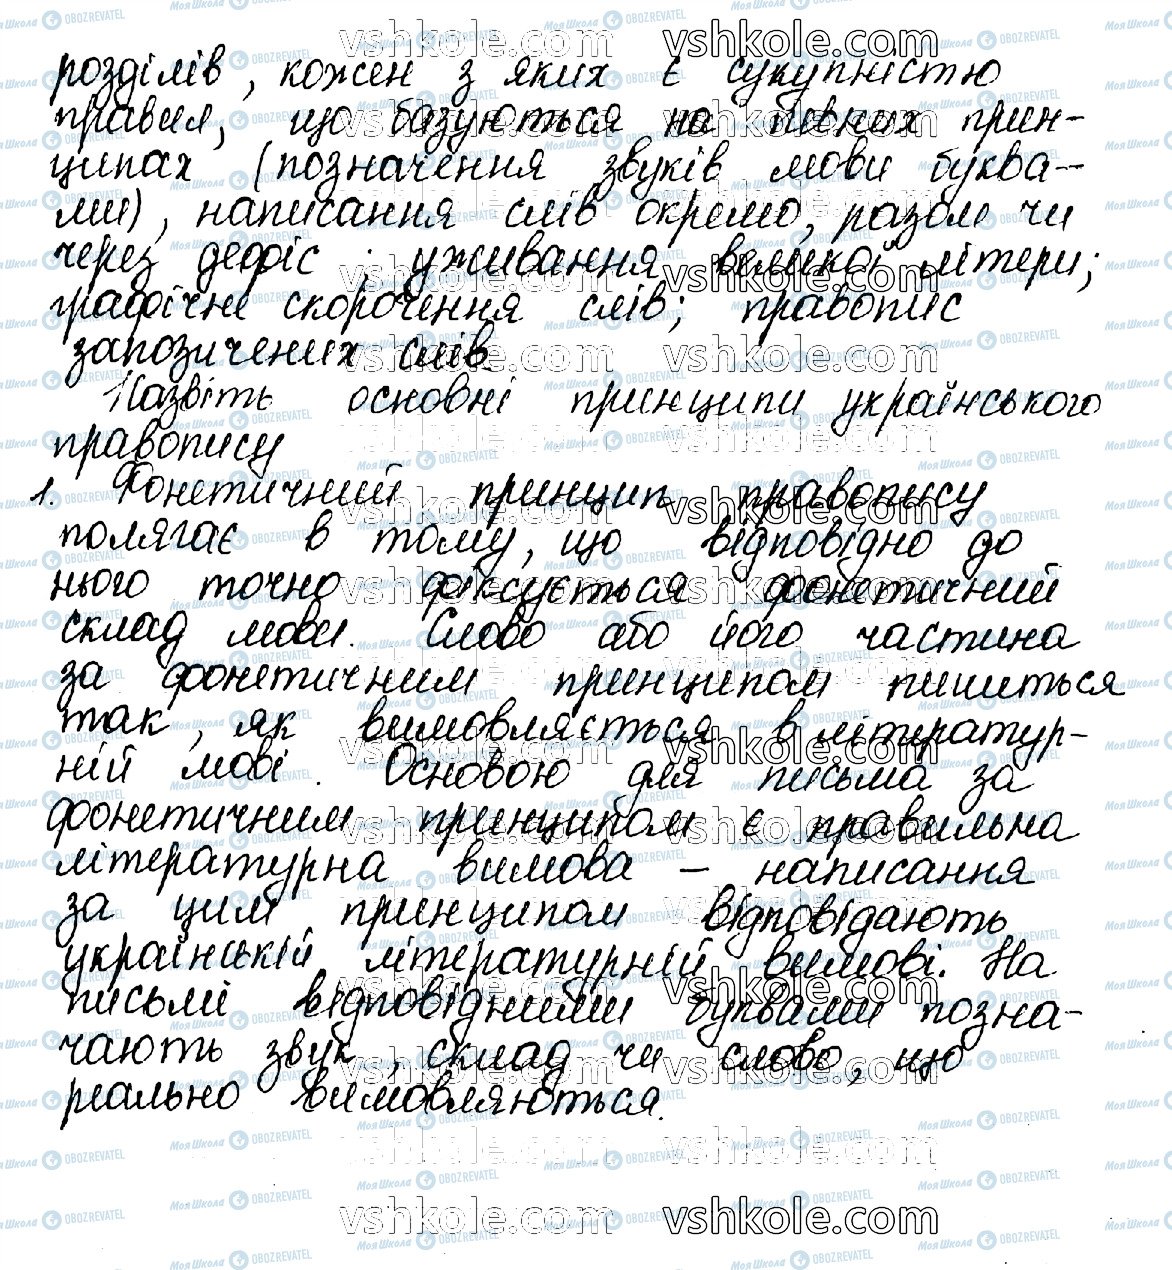 розділів, кожен з яких є сукупністю
правил, що базуються на певних прин-
ципах (позначення звуків мови буква-
ми), написання слів окремо, разом чи
через дефіс; уживання великої літери;
графічне скорочення слів; правопис
запозичених слів.
Назвіть основні принципи українського
правопису
1. Фонетичний принцип правопису
полягає в тому, що відповідно до
нього точно фіксується фонетичний
склад мови. Слово або його частина
за фонетичним принципом пишиться
так, як вимовляється в літератур-
ній мові. Основою для письма за
фонетичним принципом є правильна
літературна вимова – написання
за цим принципом відповідають
українській літературній вимові. На
письмі відповідними буквами позна-
чають звук, склад чи слово, що
реально вимовляються.